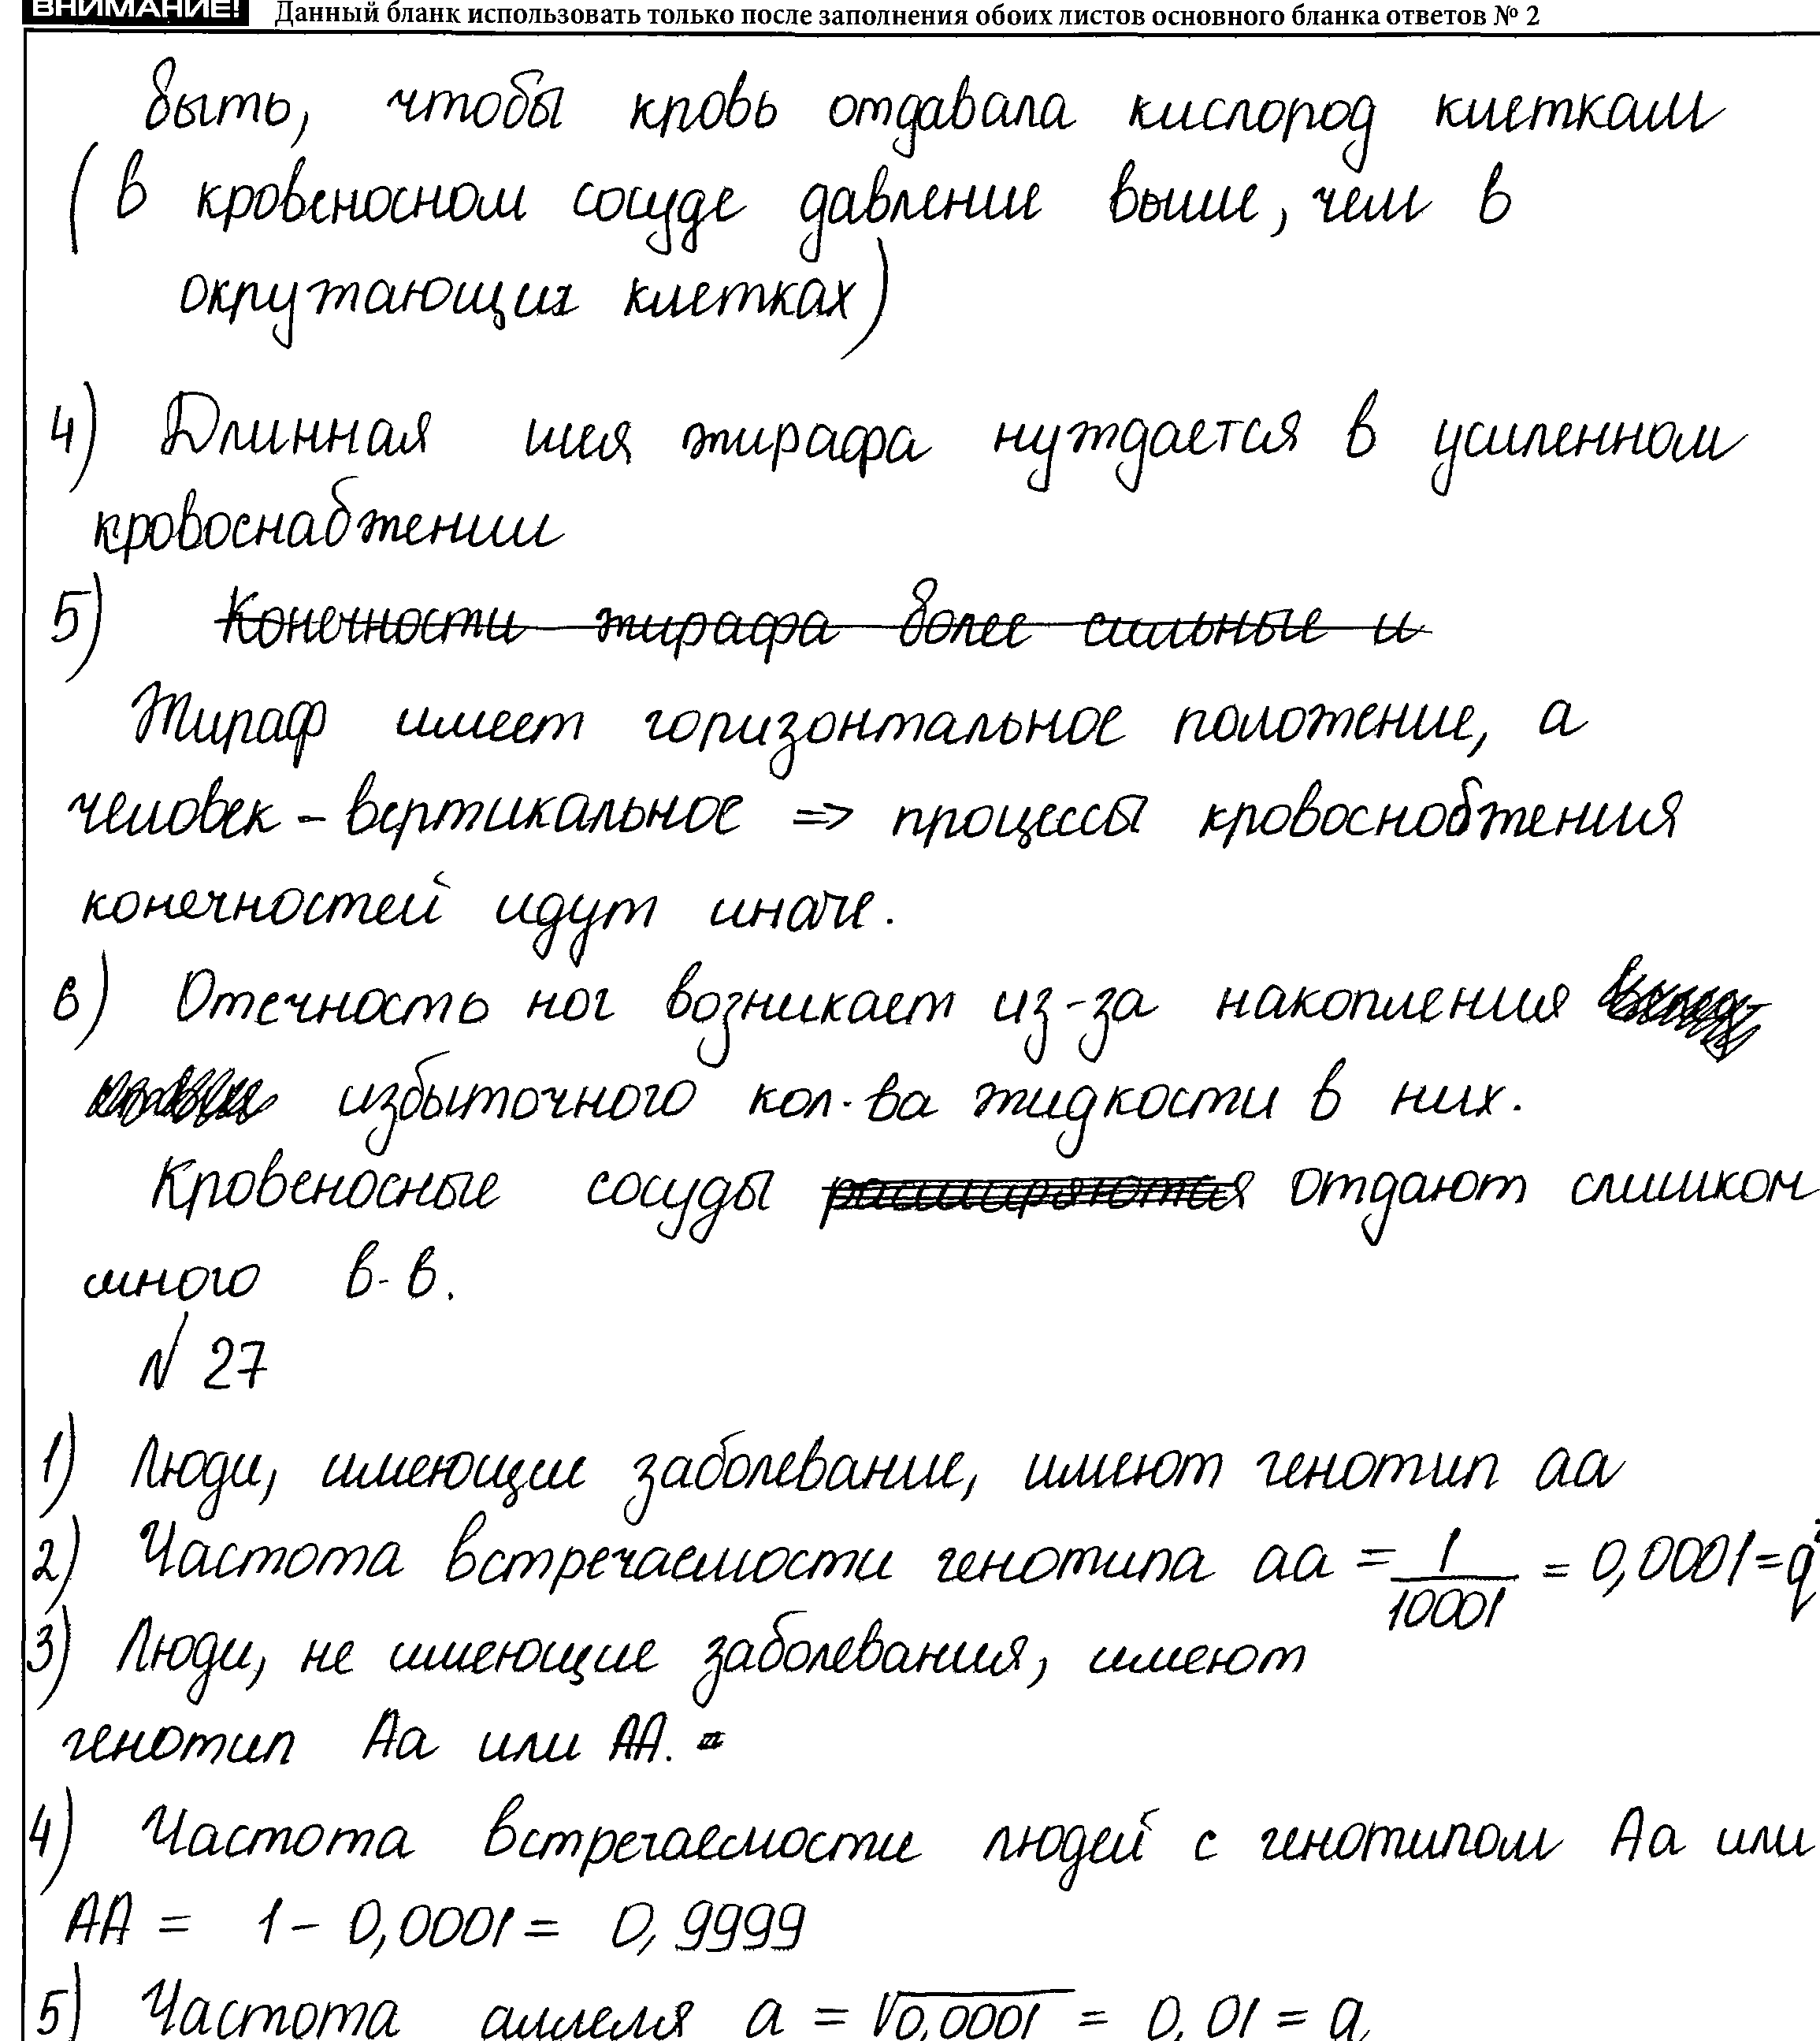 ВНИМАНИЕ! Данный бланк использовать только после заполнения обоих листов основного бланка ответов № 2
быть, чтобы кровь отдавала кислород клеткам
(в кровеносном сосуде давление выше, чем в
окружающих клетках)
4) Длинная шея жирафа нуждается в усиленном
кровоснабжении
5) Конечности жирафа более сильные и
Жираф имеет горизонтальное положение, а
человек - вертикальное => процессы кровоснобжения
конечностей идут иначе.
6) Отечность ног возникает из-за накопления
избыточного кол-ва жидкости в них.
Кровеносные сосуды расширяются отдают слишком
много в-в.
№ 27
1) Люди, имеющие заболевание, имеют генотип аа
2) Частота встречаемости генотипа аа = 1/10001 = 0,0001 = q²
3) Люди, не имеющие заболевания, имеют
генотип Аа или АА.
4) Частота встречаемости людей с генотипом Аа или
АА = 1 - 0,0001 = 0,9999
5) Частота аллеля а = √0,0001 = 0,01 = q